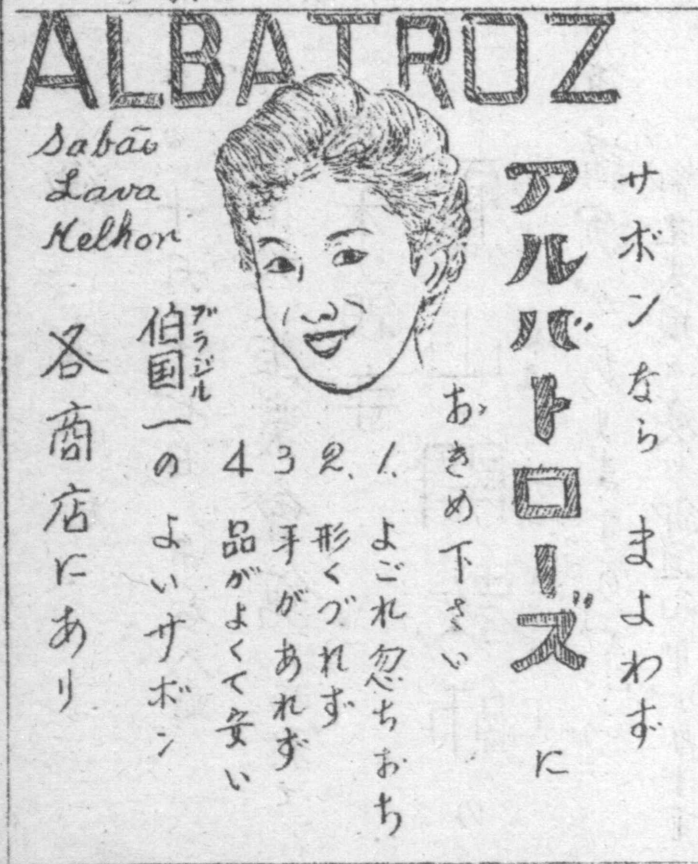 ALBATROZ
Sabão
Lava
Melhor
サボンなら まよわず
アルバトローズ に
おきめ下さい
1. よごれ忽ちおち
2. 形くづれず
3 手があれず
4 品がよくて安い
伯国一の よいサボン
ブラジル
各商店にあり